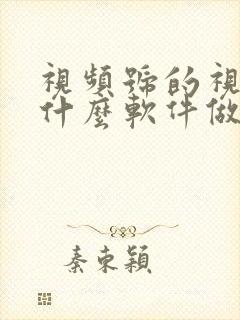 視頻號的視
什麼軟件做
秦東穎